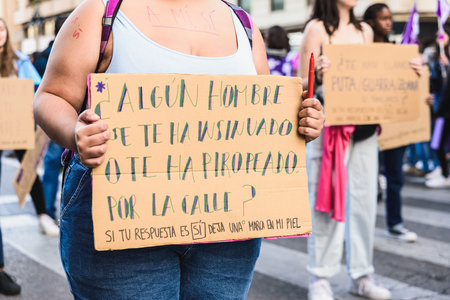 *¿ALGÚN HOMBRE
SE TE HA INSINUADO
O TE HA PIROPEADO
POR LA CALLE?
SI TU RESPUESTA ES SÍ DEJA UNA "MARCA EN MI PIEL
¿TE
PUTA GUARRA